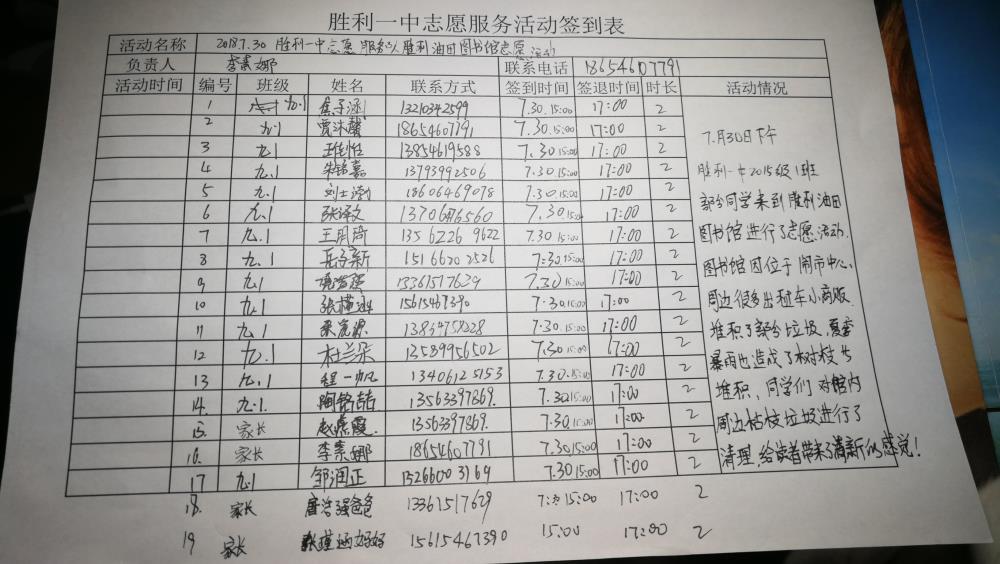 胜利一中志愿服务活动签到表
活动名称 2018.7.30 胜利一中志愿服务队胜利油田图书馆志愿活动
负责人 李素娜 联系电话 18654607791
活动时间 编号 班级 姓名 联系方式 签到时间 签退时间 时长 活动情况
1 九.1 焦子涵 13210342599 7.30.15:00 17:00 2
2 九.1 贾沐馨 18654607791 7.30.15:00 17:00 2
3 九.1 13854619588 7.30 15:00 17:00 2
4 九.1 朱铭嘉 13793992506 7.30 15:00 17:00 2
5 九.1 刘士瀚 18606469078 7.30 15:00 17:00 2
6 九.1 张译文 7.30 15:00 17:00 2
7 九.1 王周琦 1356226 9622 7.30 15:00 17:00 2
8 九.1 岳子新 1516620 2526 7:30 15:00 17:00 2
9 九.1 13361517629 7.30 15:00 17:00 2
10 九.1 15615467390 7.30.15:00 17:00 2
11 九.1 7.30.15:00 17:00 2
12 九.1 杜兰朵 13589956502 7.30 15:00 17:00 2
13 九.1 程一帆 13406125153 7.30.15:00 17:00 2
14. 九.1. 陶铭喆 13563397869. 7.30 15:00 17:00 2
15. 家长 赵燕霞 13563397869. 7.30.15:00 17:00 2
16. 家长 李素娜 18654607791 7.30 15:00 17:00 2
17 九.1 邹润正 1526600 3169 7.30 15:00 17:00 2
18. 家长 唐浩强爸爸 13361517629 15:00 17:00 2
19 家长 张瑾涵妈妈 15615467390 15:00 17:00 2
7.月30日下午
胜利一中2015级1班
部分同学来到胜利油田
图书馆进行了志愿活动.
图书馆因位于闹市中心、
周边很多出租车小商贩.
堆积了部分垃圾.夏季
暴雨也造成了树枝
堆积、同学们对馆内
周边枯枝垃圾进行了
清理,给读者带来了清新的感觉!